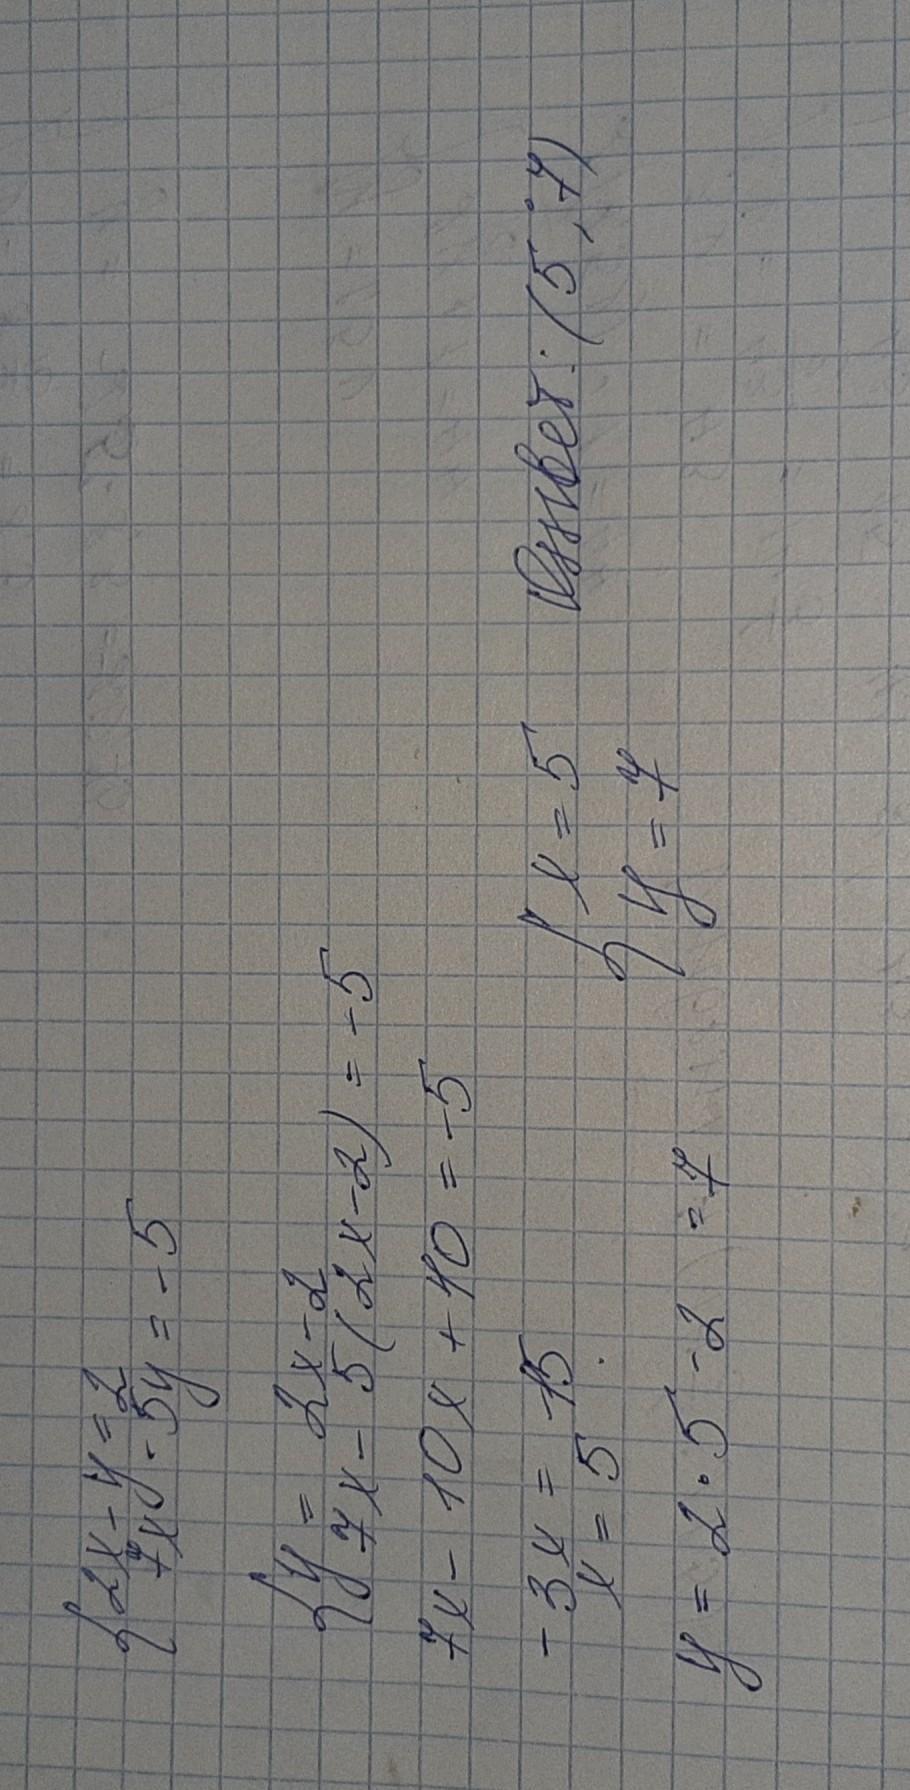 {2x-y=2
7x-5y=-5
{y=2x-2
7x-5(2x-2)=-5
7x-10x+10=-5
-3x=-15
x=5
y=2·5-2=7
{x=5
y=7
Ответ: (5;7)